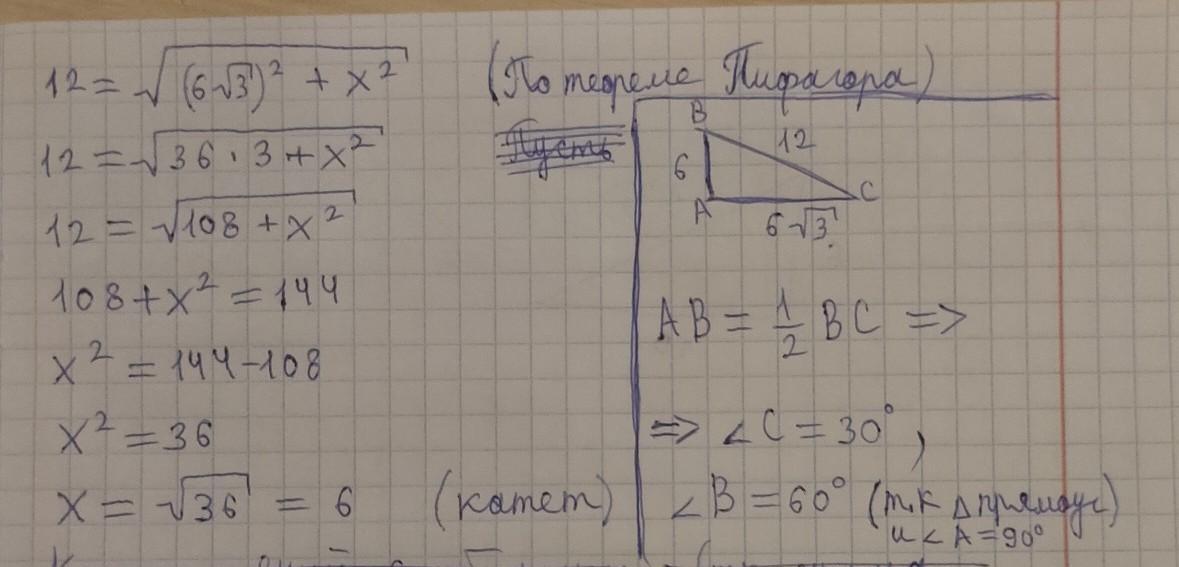 12 = √((6√3)² + x²) (По теореме Пифагора)
12 = √(36 · 3 + x²) Пусть
12 = √(108 + x²)
108 + x² = 144
x² = 144 - 108
x² = 36
x = √36 = 6 (катет)
B
12
6
A
C
6√3
AB = 1/2 BC =>
=> ∠C = 30°,
∠B = 60° (т.к △ прямоуг)
и ∠A = 90°